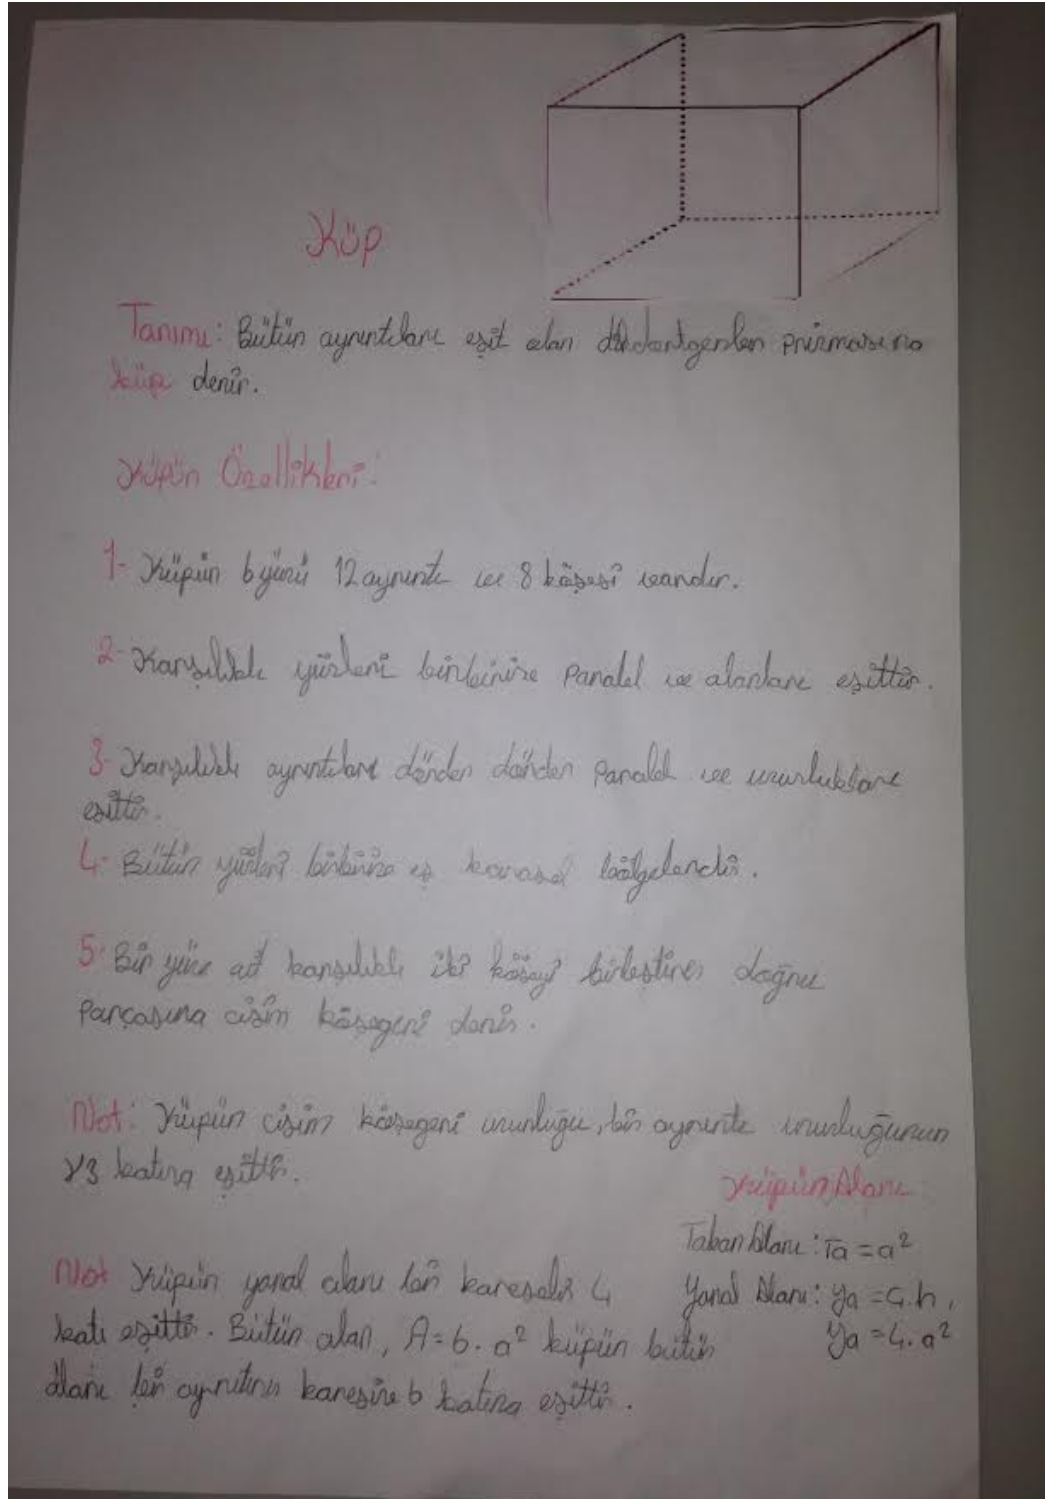 Küp
Tanımı: Bütün ayrıntıları eşit olan dikdörtgenler prizmasına
küp denir.
Küpün Özellikleri:
1- Küpün 6 yüzü 12 ayrıntı ve 8 köşesi vardır.
2- Karşılıklı yüzleri birbirine Paralel ve alanları eşittir.
3- Karşılıklı ayrıntıları dörder dörder Paralel ve uzunlukları
eşittir.
4- Bütün yüzleri birbirine eş karesel bölgelerdir.
5- Bir yüze ait karşılıklı iki köşeyi birleştiren doğru
Parçasına cisim köşegeni denir.
Not: Küpün cisim köşegeni uzunluğu, bir ayrıntı uzunluğunun
√3 katına eşittir.
Küpün Alanı:
Taban Alanı: Ta = a²
Not Küpün yanal alanı bir karesel 4
Yanal Alanı: Ya = Ç.h,
katı eşittir. Bütün alan, A = 6. a² küpün bütün
Ya = 4. a²
alanı bir ayrıtının karesine 6 katına eşittir.